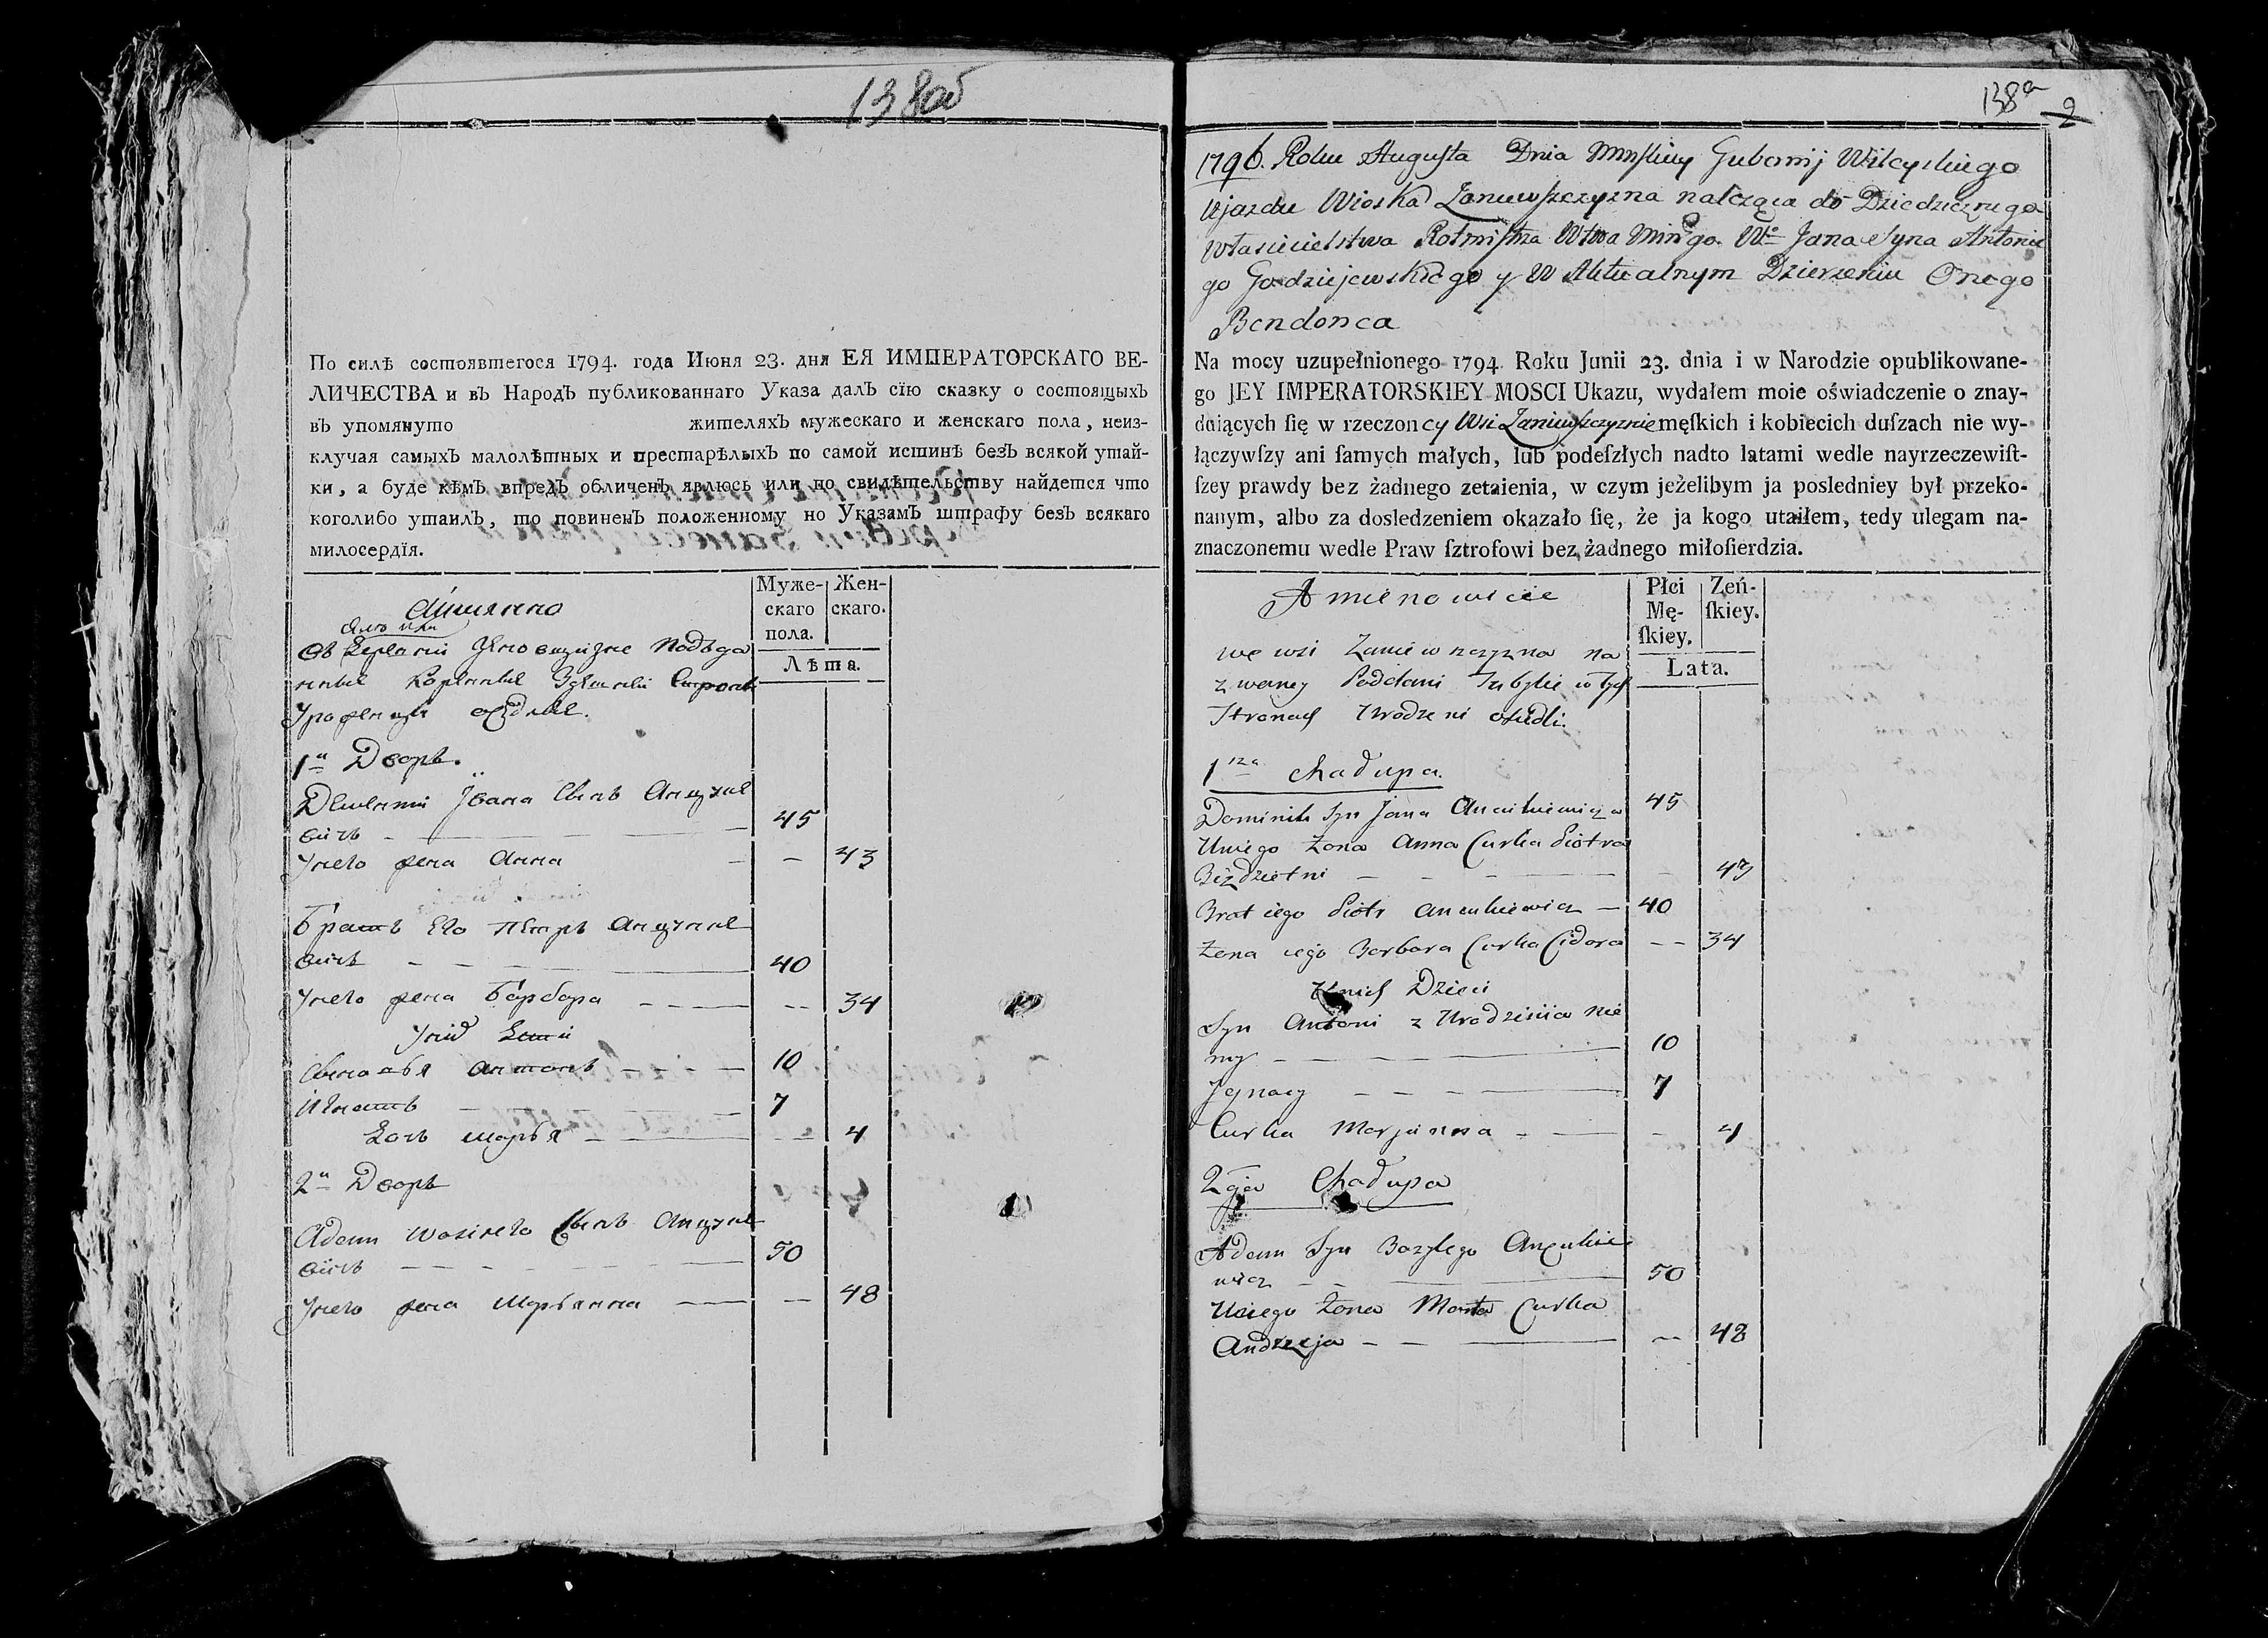 138об
По силѣ состоявшегося 1794. года Июня 23. дня ЕЯ ИМПЕРАТОРСКАГО ВЕ-
ЛИЧЕСТВА и въ Народъ публикованнаго Указа далъ сїю сказку о состоящыхъ
въ упомянуто жителяхъ мужескаго и женскаго пола, неиз-
ключая самыхъ малолѣтныхъ и престарѣлыхъ по самой истинѣ безъ всякой утай-
ки, а буде кѣмъ впредь обличенъ явлюсь или по свидѣтельству найдется что
коголибо утаилъ, то повиненъ положенному по Указамъ штрафу безъ всякаго
милосердїя.
Муже-
скаго
пола.
Жен-
скаго.
Лѣта.
1й Дворъ.
Ивана Сынъ Анцуке
вичъ 45
У него жена Анна 43
Братъ Его Петръ Анцуке
вичъ 40
У него жена Барбара 34
Сыновья Антонъ 10
Игнатъ 7
Дочь Марья 4
2й Дворъ
Адам Сынъ Анцуке
вичъ 50
У него жена Марьянна 48
138а
2
1796. Roku Augusta Dnia Minskiey Gubernij Wileyskiego
Ujazdu Wioska Zaniewszczyzna należąca do Dziedzicznego
Własicielstwa Rotmistrza Wtwa Minsgo. Jana Syna Antonie
go Godziejewskiego y W Aktualnym Dzierzeniu Onego
Bendonca
Na mocy uzupełnionego 1794. Roku Junii 23. dnia i w Narodzie opublikowane-
go JEY IMPERATORSKIEY MOSCI Ukazu, wydałem moie oświadczenie o znay-
duiących ſię w rzeczoncy Wsi Zaniewszczyznie męſkich i kobiecich duſzach nie wy-
łączywſzy ani ſamych małych, lub podeſzłych nadto latami wedle nayrzeczewiſt-
ſzey prawdy bez żadnego zetaienia, w czym jeżelibym ja posledniey był przeko-
nanym, albo za dosledzeniem okazało ſię, że ja kogo utaiłem, tedy ulegam na-
znaczonemu wedle Praw ſztrofowi bez żadnego miłoſierdzia.
A mienowicie
Płci
Mę-
ſkiey.
Zeń-
ſkiey.
Lata.
we wsi Zaniewszczyzna na
zwaney Poddani w tych
Stronach Urodzeni osiedli.
1sza Chałupa.
Dominik Syn Jana Ancukiewicza 45
U niego Zona Anna Curka Piotra
Bezdzietni 43
Brat iego Piotr Ancukiewicz 40
Zena iego Barbara Curka Cidora 34
U nich Dzieci
Syn Antoni z Urodzenia nie
my 10
Jgnacy 7
Curka Marjanna 4
2ga Chałupa
Adam Syn Bazylego Ancukie
wicz 50
U niego Zona Marta Curka
Andrzeja 48